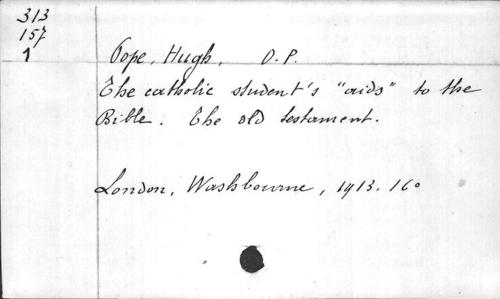 313
157
1
Pope, Hugh, O.P.
The catholic student's "aids" to the
Bible. The old testament.
London, Washbourne, 1913. 16o